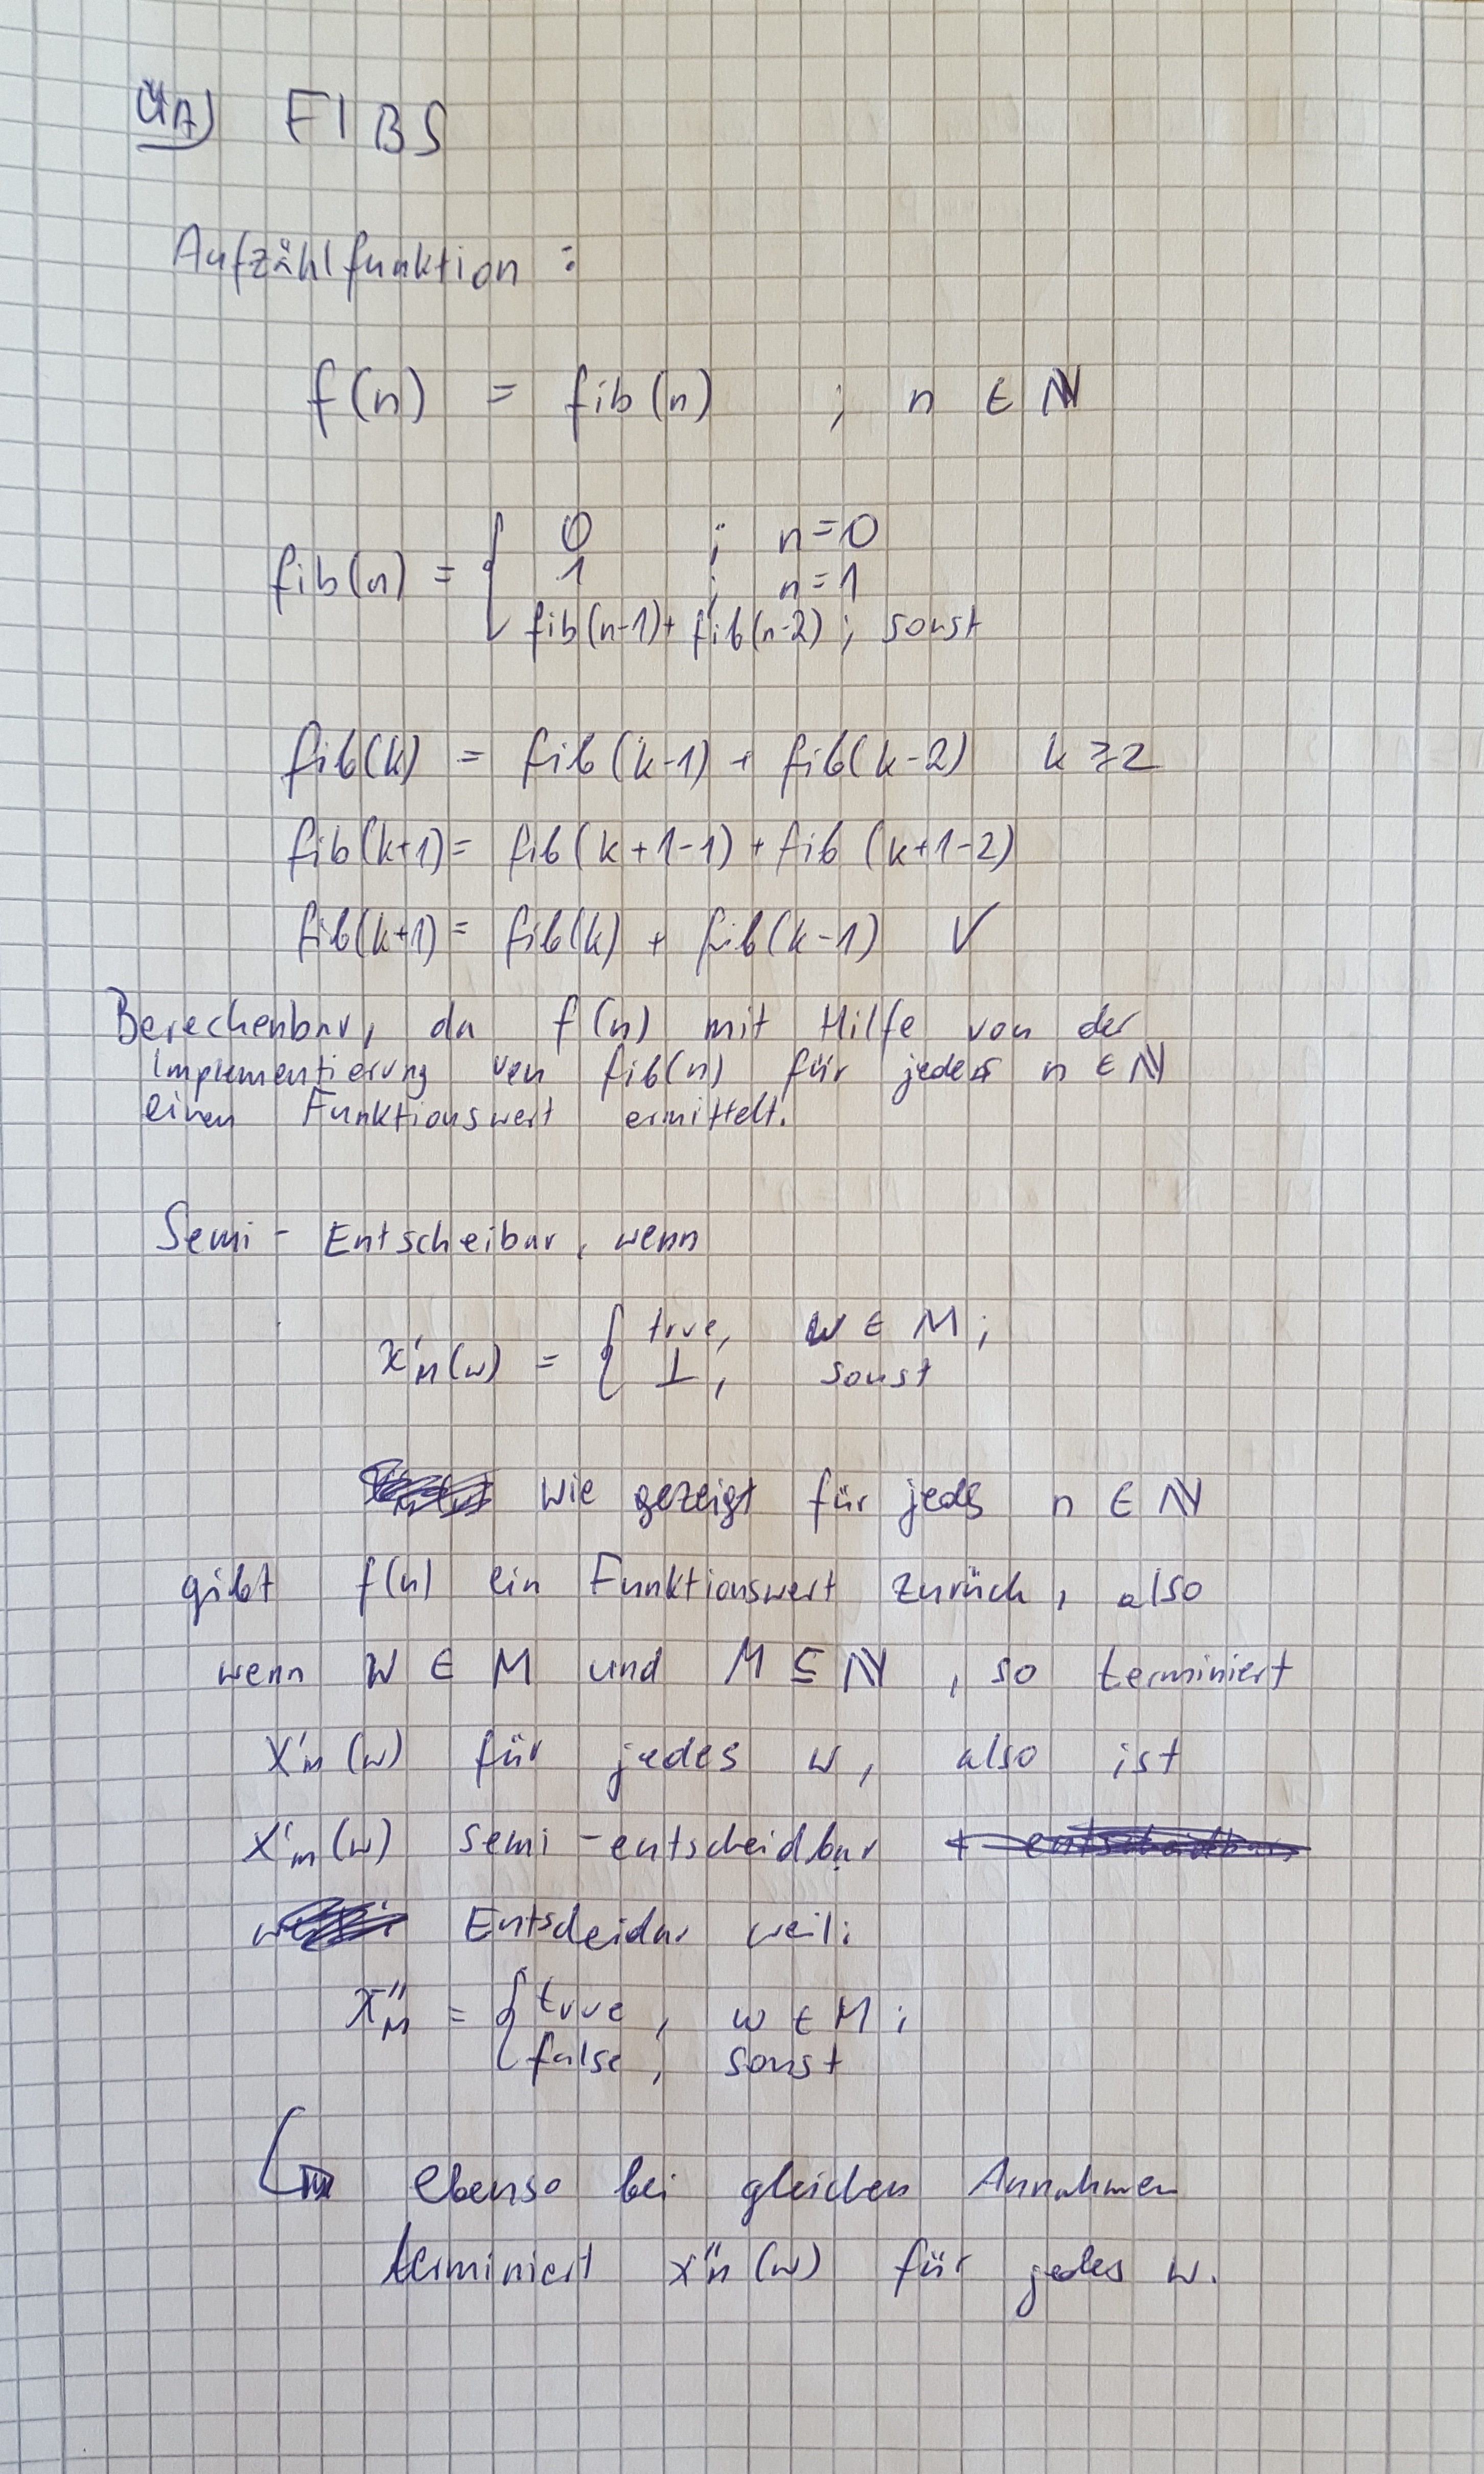 ÜA) FIBS
Aufzählfunktion :
f(n) = fib(n) ; n ∈ ℕ
fib(n) = { 0 ; n=0
1 ; n=1
fib(n-1)+ fib(n-2) ; sonst
fib(k) = fib(k-1) + fib(k-2) k ≥ 2
fib(k+1) = fib(k+1-1) + fib (k+1-2)
fib(k+1) = fib(k) + fib(k-1) ✓
Berechenbar, da f(n) mit Hilfe von der
Implementierung von fib(n) für jedes n ∈ ℕ
einen Funktionswert ermittelt.
Semi- Entscheibar, wenn
χ'M(w) = { true, w ∈ M ;
⊥, sonst
wie gezeigt für jeds n ∈ ℕ
gibt f(n) ein Funktionswert zurück, also
wenn w ∈ M und M ⊆ ℕ, so terminiert
χ'M(w) für jedes w, also ist
χ'M(w) semi-entscheidbar
Entscheidar weil:
χ''M = { true, w ∈ M ;
false, sonst
↳ ebenso bei gleichen Annahmen
terminiert χ''M(w) für jedes w.